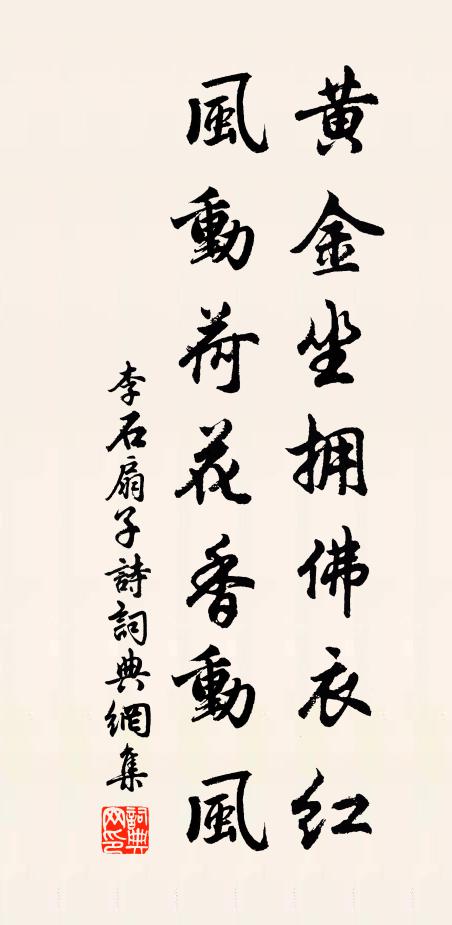 黄金坐拥佛衣红
風動荷花香動風
李石扇子詩詞典網集
詞典網印